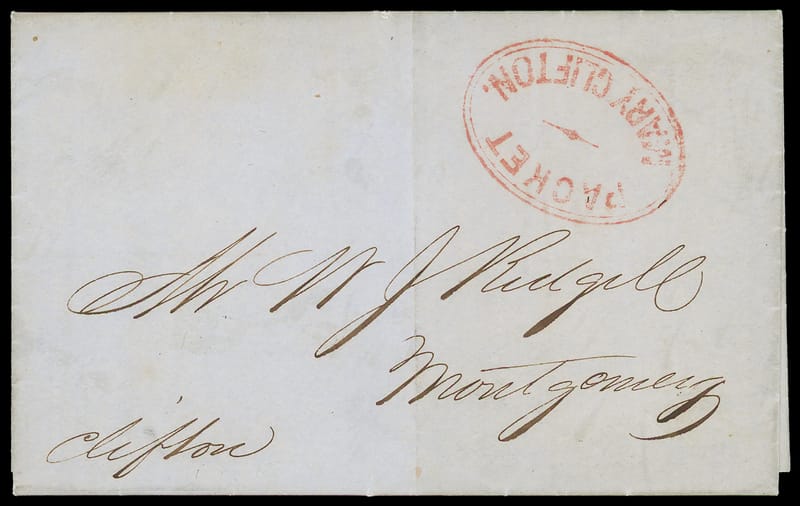 MARY CLIFTON.
PACKET
Mr W J Ridgill
Montgomery
Clifton